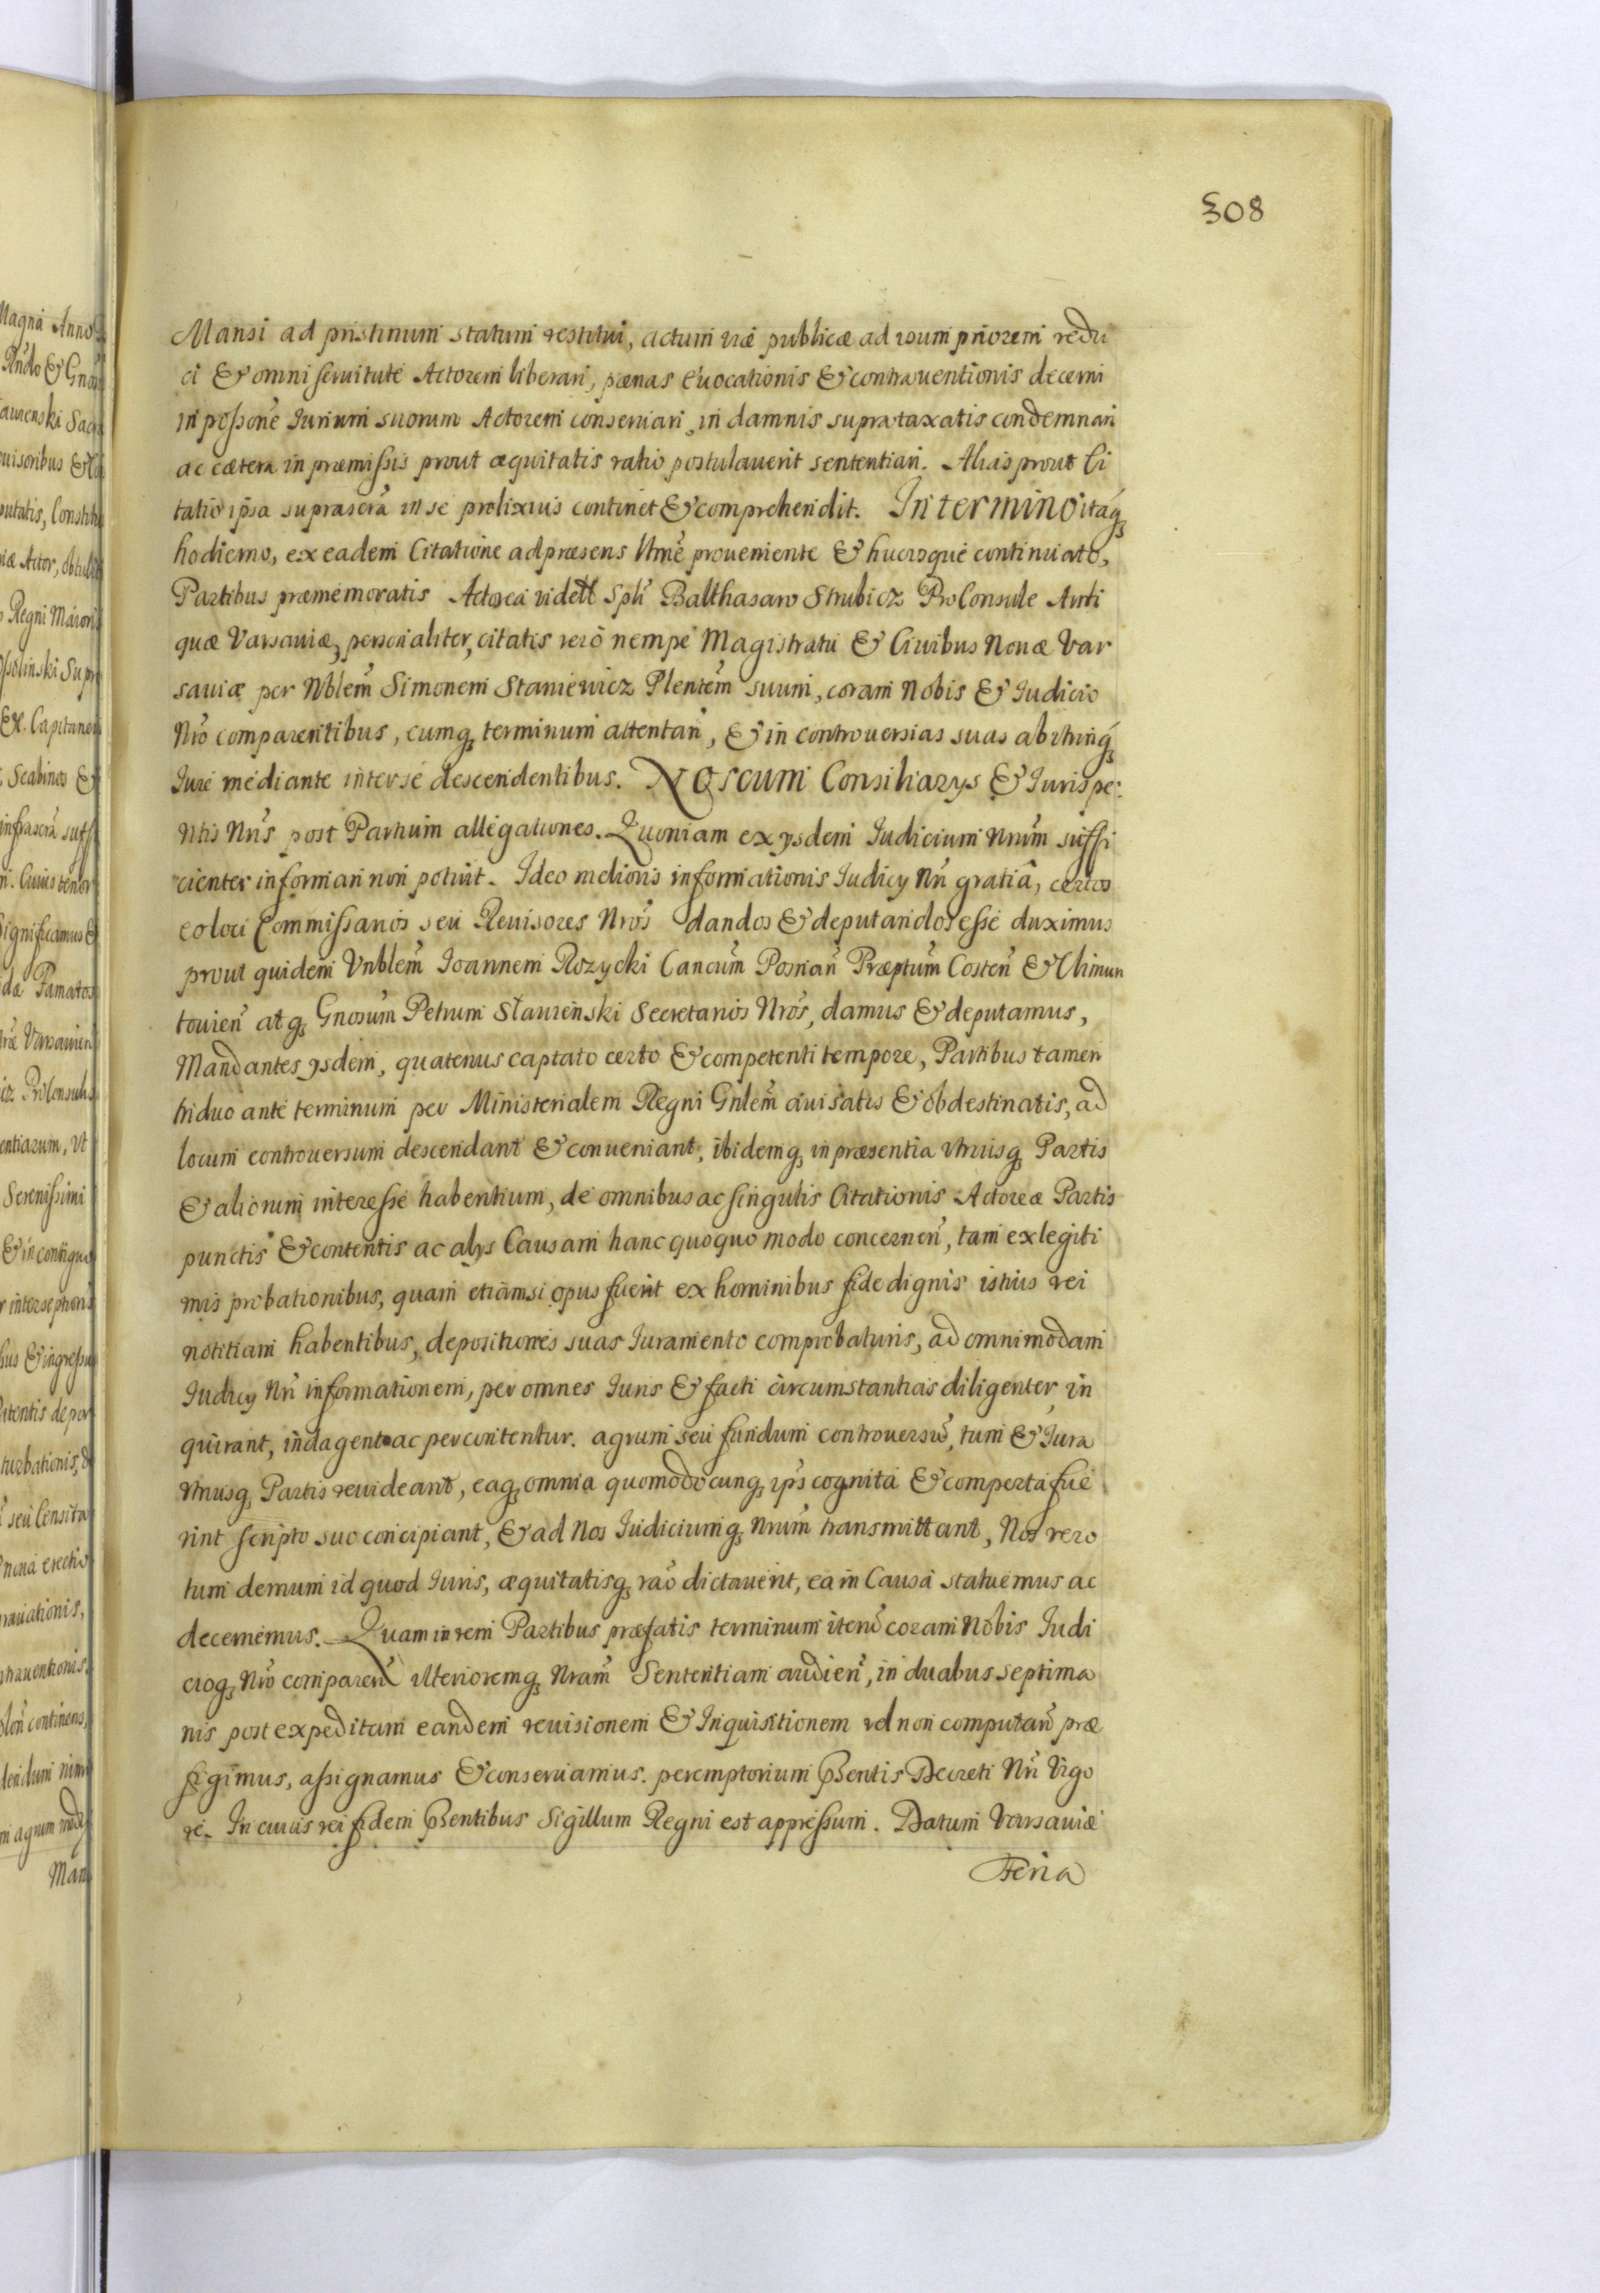 308
Mansi ad pristinum statum restitui, actum viæ publicæ ad usum priorem redu
ci & omni servitute Actorem liberari, pænas evocationis & contraventionis decerni
in possone Iurium suorum Actorem conservari, in damnis supra taxatis condemnari
ac cætera in præmissis prout æquitatis ratio postulaverit sententiari. Alias prout Ci
tatio ipsa suprascra in se prolixius continet & comprehendit. In termino itaq
hodierno, ex eadem Citatione ad præsens ltme proveniente & hucusque continuato,
Partibus præmemoratis Actorea videtl Spli Balthasaro Strubicz ProConsule Anti
quæ Varsaviæ, personaliter, citatis vero nempe Magistratu & Civibus Novæ Var
saviæ per Nblem Simonem Staniewicz Plentem suum, coram Nobis & Iudicio
Nro comparentibus, cumq terminum attentan, & in controversias suas ab utrinq
Iure mediante inter se descendentibus. Nos cum Consiliarys & Iurispe:
ritis Nris post Partium allegationes. Quoniam ex ysdem Iudicium Nrum suffi
cienter informari non potuit. Ideo melioris informationis Iudicy Nri gratiâ, certos
eo loci Commissarios seu Revisores Nros dandos & deputandos esse duximus
prout quidem Vnblem Ioannem Rozycki Cancum Posnan Præptum Costen & Climun
tovien atq Gnosum Petrum Stawienski Secretarios Nros, damus & deputamus,
Mandantes ysdem, quatenus captato certo & competenti tempore, Partibus tamen
triduo ante terminum per Ministerialem Regni Gnlem avisatis & obdestinatis, ad
locum controversum descendant & conveniant, ibidemq in præsentia utriusq Partis
& aliorum interesse habentium, de omnibus ac singulis Citationis Actoreæ Partis
punctis & contentis ac alys Causam hanc quoquo modo concernen, tam ex legiti
mis probationibus, quam etiam si opus fuerit ex hominibus fide dignis istius rei
notitiam habentibus, depositiones suas Iuramento comprobaturis, ad omnimodam
Iudicy Nri informationem, per omnes Iuris & facti circumstantias diligenter in
quirant, indagent ac percontentur. agrum seu fundum controversu, tum & Iura
utriusq Partis revideant, eaq omnia quomodocunq ipis cognita & comperta fue
rint scripto suo concipiant, & ad Nos Iudiciumq Nrum transmittant, Nos vero
tum demum id quod Iuris, æquitatisq rao dictaverit, ea in Causa statuemus ac
decernemus. Quam in rem Partibus præfatis terminum iteru coram Nobis Iudi
cioq Nro comparen ulterioremq Nram Sententiam audien, in duabus septima
nis post expeditam eandem revisionem & Inquisitionem vel non computan præ
figimus, assignamus & conservamus. peremptorium pntis Decreti Nri vigo
re. In cuius rei fidem pntibus Sigillum Regni est appressum. Datum Varsaviæ
Feria